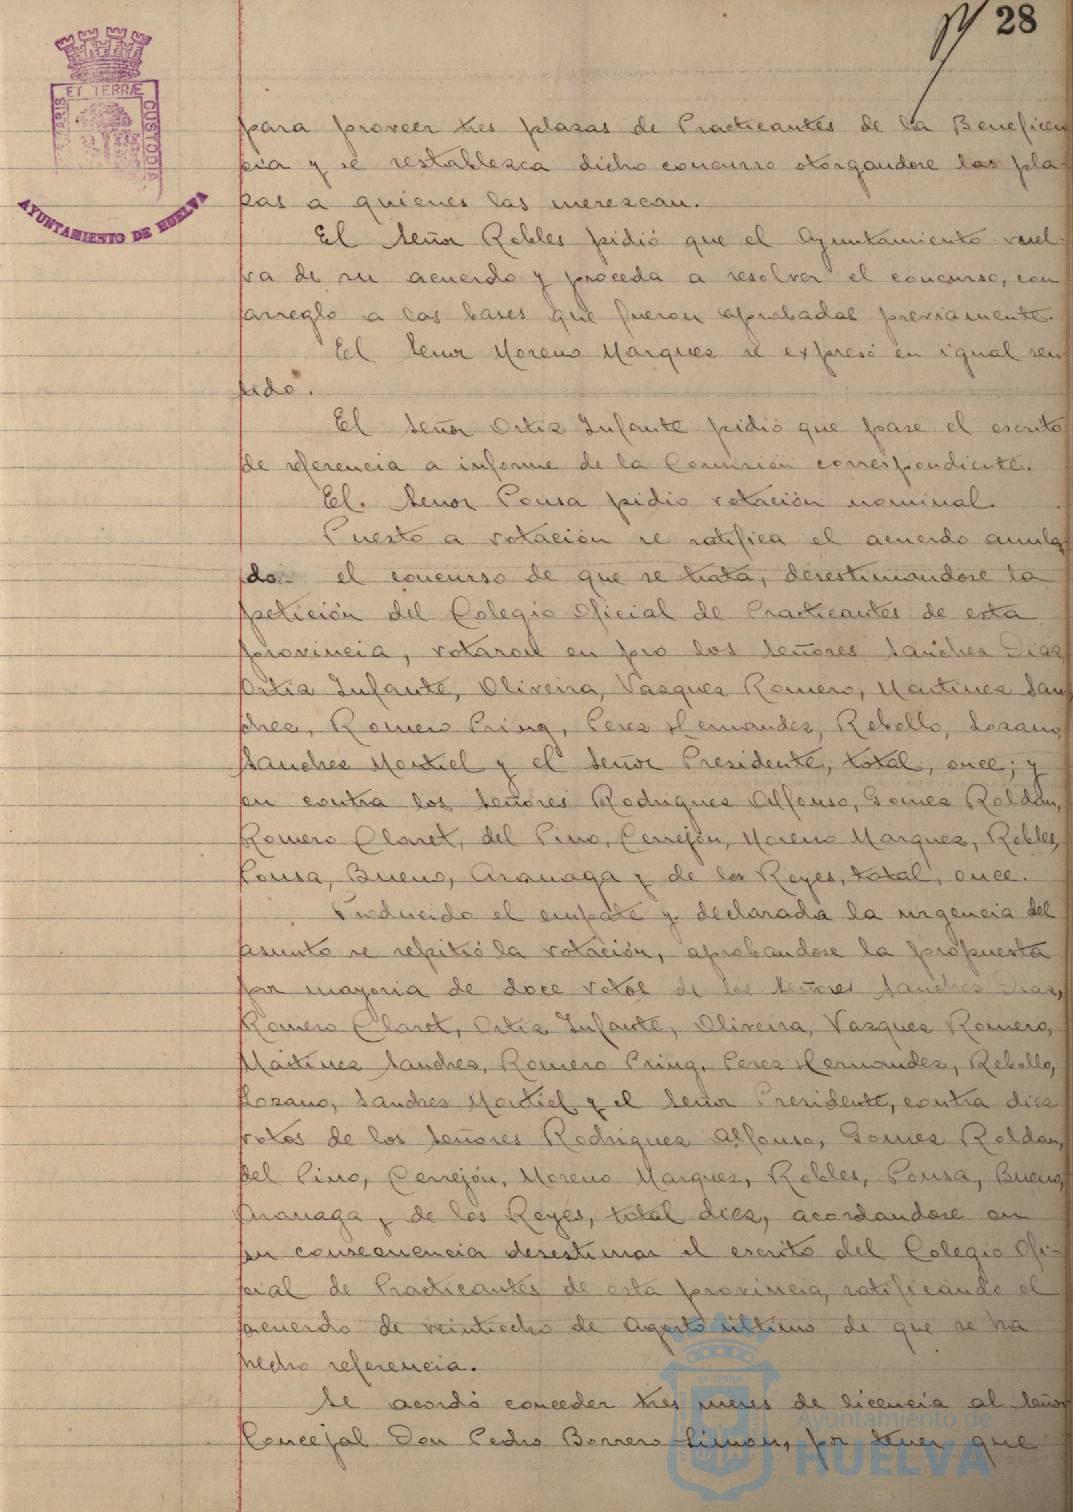 28
PORTUS MARIS ET TERRÆ CUSTODIA
AYUNTAMIENTO DE HUELVA
para proveer tres plazas de Practicantes de la Beneficen
cia y se restablezca dicho concurso otorgandose las pla-
zas a quienes las merezcan.
El Señor Robles pidió que el Ayuntamiento vuel
va de su acuerdo y proceda a resolver el concurso, con
arreglo a las bases que fueron aprobadas previamente.
El Señor Moreno Marquez se expresó en igual sen
tido.
El Señor Ortiz Infante pidió que pase el escrito
de referencia a informe de la Comisión correspondiente.
El Señor Pousa pidio votación nominal.
Puesto a votación se ratifica el acuerdo anula
do el concurso de que se trata, desestimandose la
petición del Colegio Oficial de Practicantes de esta
provincia, votaron en pro los Señores Sanchez Diaz,
Ortiz Infante, Oliveira, Vazquez Romero, Martinez San
chez, Romero Pring, Perez Hernandez, Rebollo, Lozano,
Sanchez Montiel y el Señor Presidente, total, once; y
en contra los Señores Rodriguez Alfonso, Gomez Roldan,
Romero Claret, del Pino, Cerrejón, Moreno Marquez, Robles,
Pousa, Bueno, Aranaga y de los Reyes, total, once.
Producido el empate y declarada la urgencia del
asunto se repitió la votación, aprobandose la propuesta
por mayoria de doce votos de los Señores Sanchez Diaz,
Romero Claret, Ortiz Infante, Oliveira, Vazquez Romero,
Martinez Sanchez, Romero Pring, Perez Hernandez, Rebollo,
Lozano, Sanchez Montiel y el Señor Presidente, contra diez
votos de los Señores Rodriguez Alfonso, Gomez Roldan,
del Pino, Cerrejón, Moreno Marquez, Robles, Pousa, Bueno,
Aranaga y de los Reyes, total diez, acordandose en
su consecuencia desestimar el escrito del Colegio Ofi-
cial de Practicantes de esta provincia, ratificando el
acuerdo de veintiocho de Agosto último de que se ha
hecho referencia.
Se acordó conceder tres meses de licencia al Señor
Concejal Don Pedro Borrero Limon, por tener que
Ayuntamiento de
HUELVA